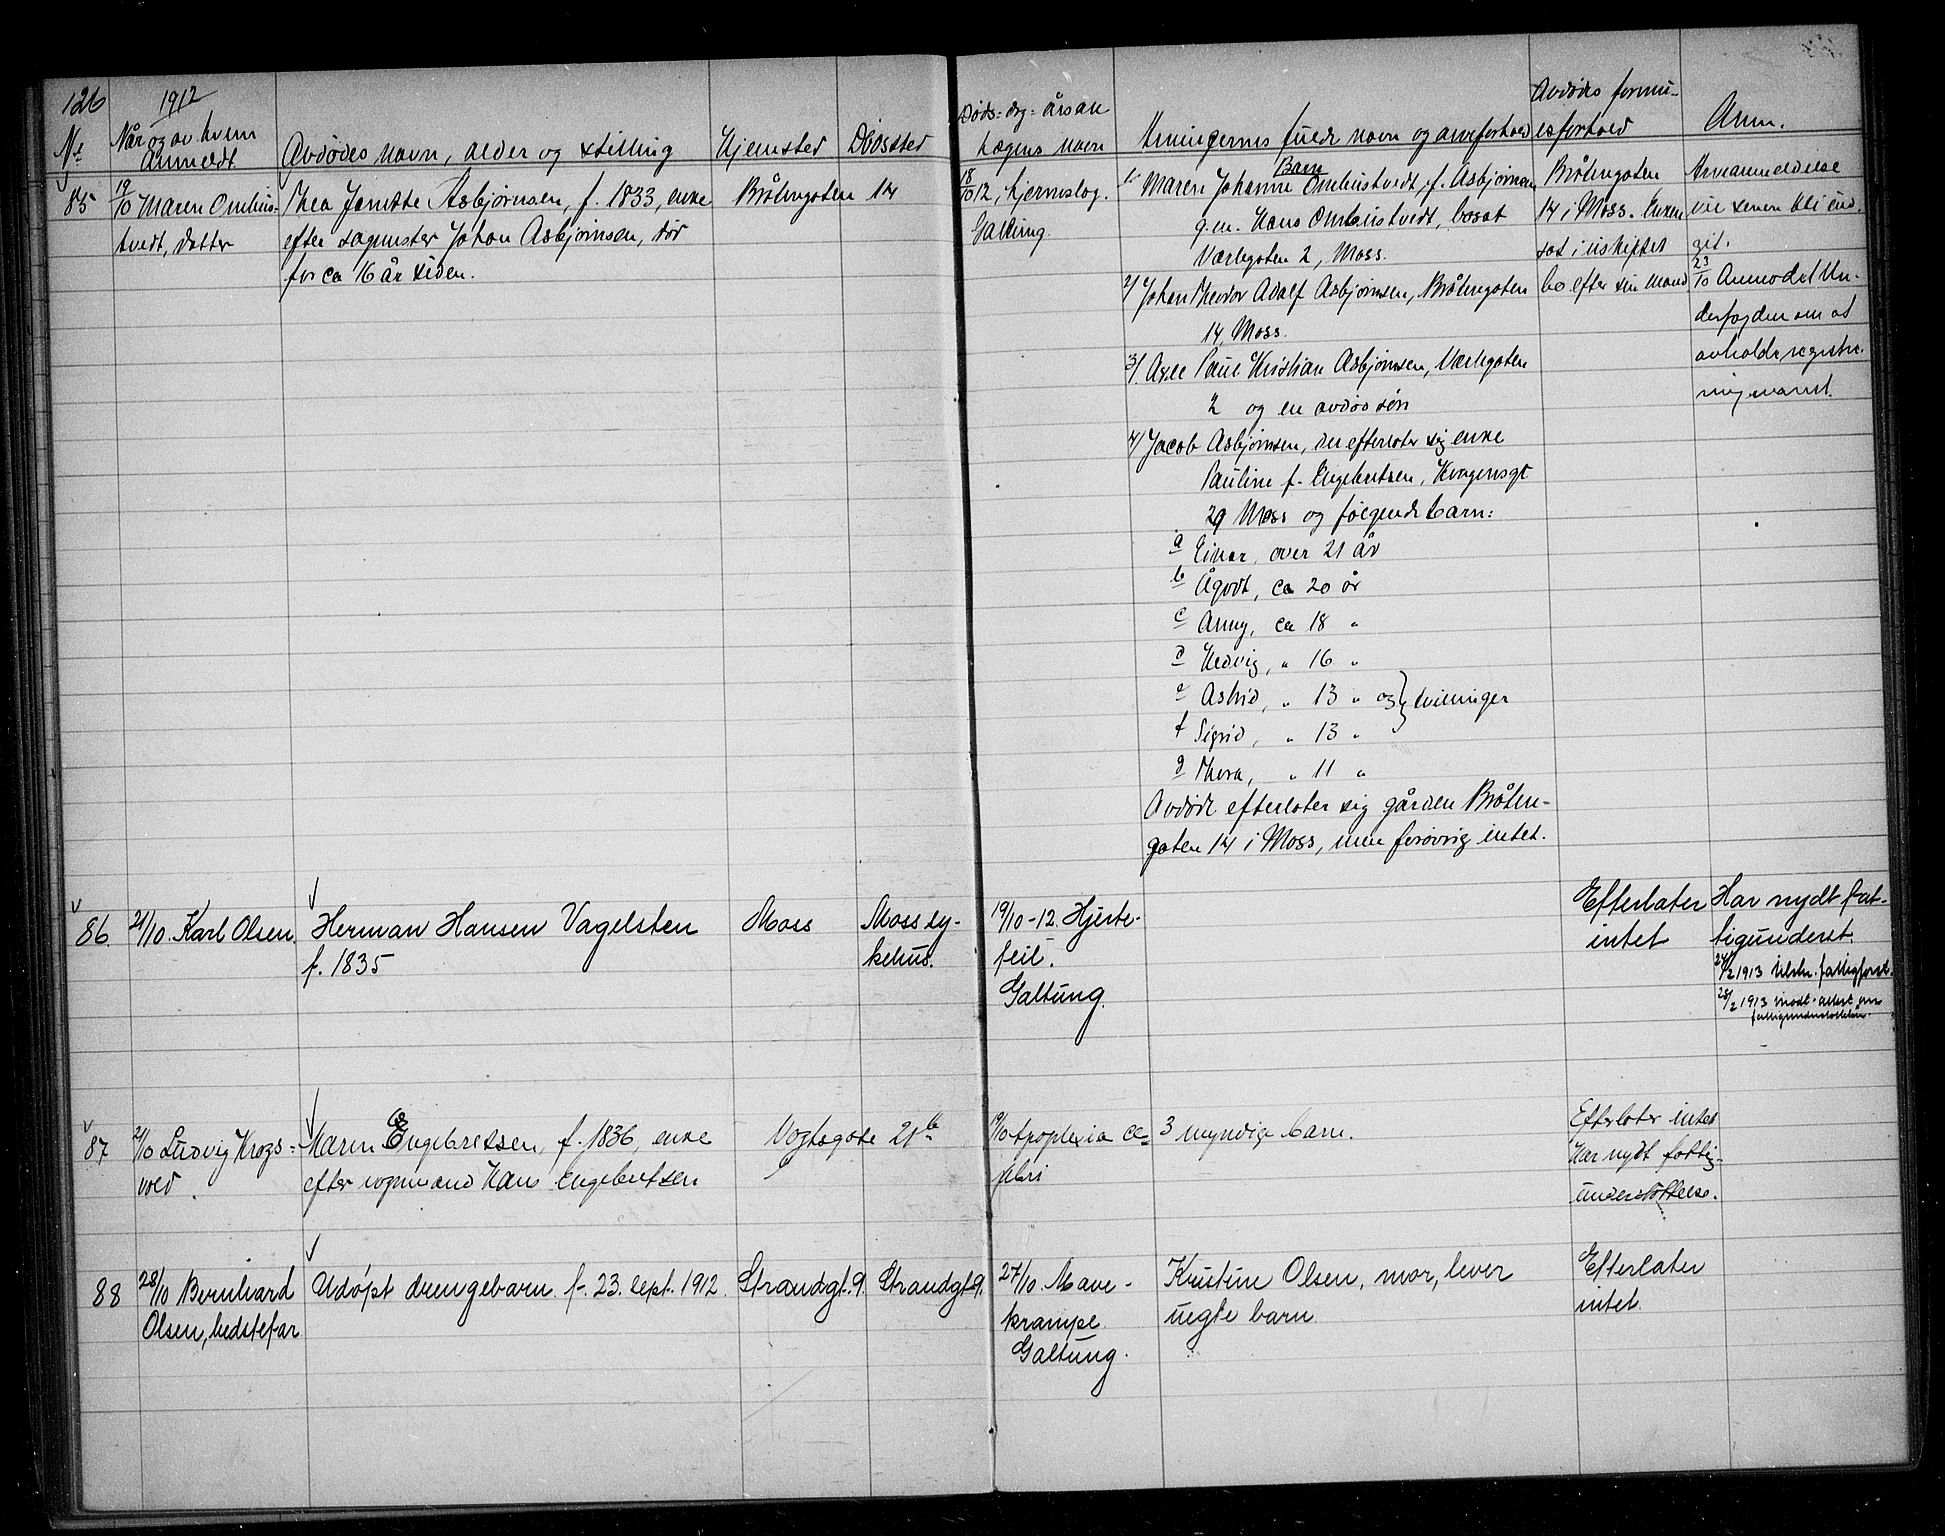 126
1912
No
Når og av hvem
Anmeldt
Avdødes navn, alder og stilling
Hjemsted
Dødssted
Døds-dag-årsak
Lægens navn
Arvingernes fulde navn og arveforhold
Avdødes formu-
esforhold
Anm.
85
19/10 Maren Ombus-
tvedt, datter
Thea Jonette Asbjørnsen, f. 1833, enke
efter sagmester Johan Asbjørnsen, død
for ca 16 år siden.
Bråtengaten 14
18/10 12, hjerneslag.
Galtung.
Barn
1/ Maren Johanne Ombustvedt, f. Asbjørnsen
g.m. Hans Ombustvedt, bosat
Værlegaten 2, Moss.
2/ Johan Theodor Adolf Asbjørnsen, Bråtengaten
14, Moss.
3/. Axel Paul Kristian Asbjørnsen, Værlegaten
2 og en avdød søn
4/ Jacob Asbjørnsen, der efterlater sig enke
Pauline f. Engebretsen, Kragensgt
29 Moss og følgende barn:
a Einar, over 21 år
b Ågodt, ca 20 år
c Anny, ca 18 "
d Hedvig, " 16 "
e Astrid, " 13 " og } tvillinger
f Sigrid, " 13 "
g Thora, " 11 "
Avdøde efterlater sig gården Bråten-
gaten 14 i Moss, men forøvrig intet.
Bråtengaten
14 i Moss. Enken
sat i uskiftet
bo efter sin mand
Arveanmeldelse
vil senere bli ind-
git.
23/10 Anmodet Un-
derfogden om at
avholde registre-
ring
86
21/10. Karl Olsen.
Herman Hansen Vagelsten
f. 1835
Moss
Moss sy-
kehus.
19/10-12. Hjerte-
feil.
Galtung.
Efterlater
intet
Har nydt fat-
tigunderst.
24/2 1913 tilskr. fattigforst.
28/2 1913 modt. attest om
fattigunderstøttelse.
87
21/10 Ludvig Krogs-
vold.
Maren Engebretsen, f. 1836, enke
efter vognmand Hans Engebretsen
Vogtsgate 21 b
19/10 Apoplexia ce-
rebri
3 myndige barn.
Efterlater intet
Har nydt fattig-
understøttelse.
88
28/10 Bernhard
Olsen, bedstefar
Udøpt drengebarn f. 23. sept. 1912.
Strandgt. 9.
Strandgt 9.
27/10. Mave-
krampe.
Galtung.
Kristine Olsen, mor, lever
uegte barn.
Efterlater
intet.